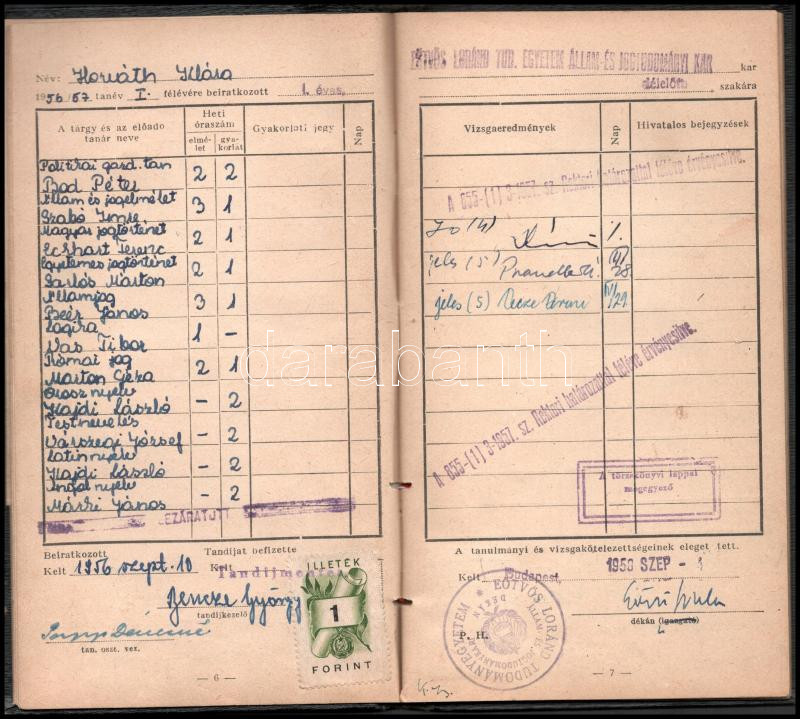 Név: Horváth Klára
1956/57 tanév I. félévére beiratkozott I. éves.
A tárgy és az előadó tanár neve
Heti óraszám
elmélet
gyakorlat
Gyakorlati jegy
Nap
Politikai gazd. tan 2 2
Bod Péter
Állam és jogelmélet 3 1
Szabó Imre
Magyar jogtörténet 2 1
Eckhart Ferenc
Egyetemes jogtörténet 2 1
Sarlós Márton
Államjog 3 1
Beér János
Logika 1 -
Vas Tibor
Római jog 2 1
Marton Géza
Orosz nyelv - 2
Hajdi László
Testnevelés - 2
Várszegi József
Latin nyelv - 2
Hajdi László
Angol nyelv - 2
János
LEZÁRATOTT
Beiratkozott
Kelt 1956 szept. 10
Tandíjat befizette
Kelt Tandíjmentes
Jencze György
tandíjkezelő
tan. oszt. vez.
ILLETÉK
1
FORINT
— 6 —
EÖTVÖS LORÁND TUD. EGYETEM ÁLLAM-ÉS JOGTUDOMÁNYI KAR kar
délelőtt szakára
Vizsgaeredmények
Nap
Hivatalos bejegyzések
A 855-(1) 3-1957. sz. Rektori határozattal féléve érvényesítve.
Jó (4)
jeles (5)
28.
jeles (5)
29.
A 855-(1) 3-1957. sz. Rektori határozattal féléve érvényesítve.
A törzskönyvi lappal megegyező
A tanulmányi és vizsgakötelezettségeinek eleget tett.
Kelt Budapest, 1958 SZEP
dékán (igazgató)
P. H.
EÖTVÖS LORÁND TUDOMÁNYEGYETEM
— 7 —
darabanth